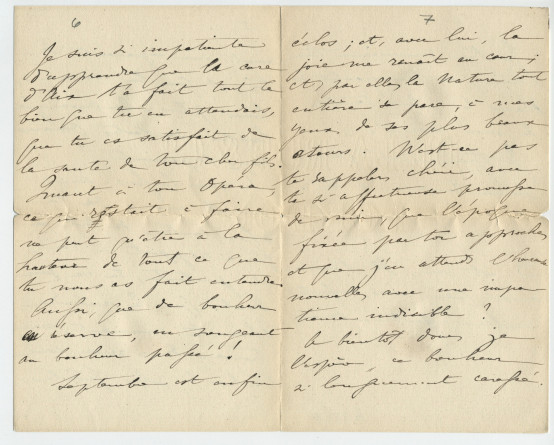 6
Je suis si impatiente
d'apprendre que la cure
d'Aix t'a fait tout le
bien que tu en attendais,
que tu es satisfait de
la santé de ton cher fils.
Quant à ton Opéra,
ce qui restait à faire
ne peut qu'être à la
hauteur de tout ce que
tu nous as fait entendre
Aussi, que de bonheur
en réserve, en songeant
au bonheur passé!
Septembre est enfin
7
éclos; et, avec lui, la
joie me renaît au cœur;
et, par elle, la Nature tout
entière se pare, à mes
yeux, de ses plus beaux
atours. N'est-ce pas
te rappeler, chéri, avec
ta si affectueuse promesse
de venir, que l'époque
fixée par toi approche,
et que j'en attends l'heureuse
nouvelle avec une impa-
tience indicible?
A bientôt donc, je
l'espère, ce bonheur
si longuement caressé.